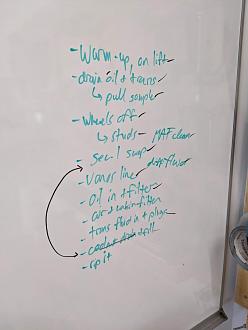 - Warm-up, on lift
- drain oil & trans
↳ pull sample
- Wheels off
↳ studs - MAF clean
- sec 1 swap
- Vanos line diff fluid
- oil in + filter
- air & cabin filter
- trans fluid in + plugs
- coolant drain & fill
- split